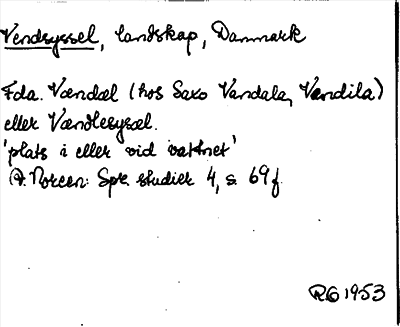 Vendsyssel, landskap, Danmark
Fda. Vændæl (hos Saxo Vandala, Vændila)
eller Vændlesysæl.
'plats i eller vid vattnet'
A. Noreen: Spr. studier 4, s. 69 f.
RG 1953